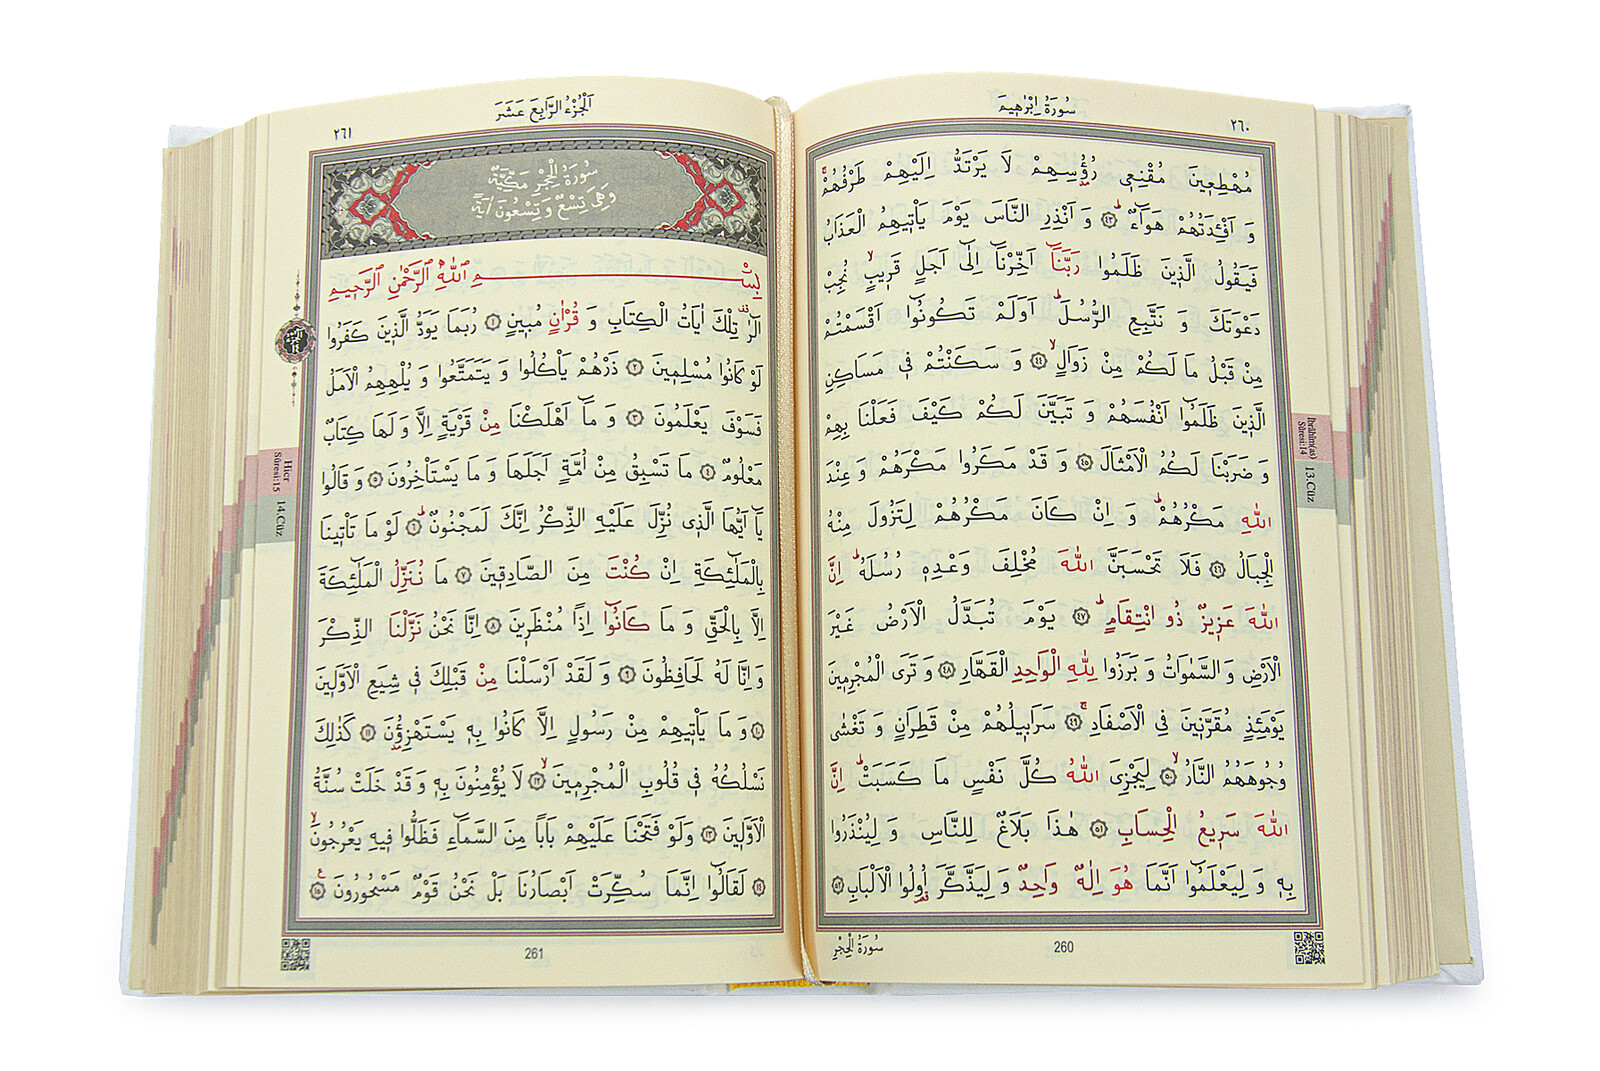 سُورَةُ اِبْرٰه۪يمَ
٢٦٠
مُهْطِع۪ينَ مُقْنِع۪ي رُؤُ۫سِهِمْ لَا يَرْتَدُّ اِلَيْهِمْ طَرْفُهُمْۚ
وَ اَفْـِٔدَتُهُمْ هَوَٓاءٌۜ ﴿٤٣﴾ وَ اَنْذِرِ النَّاسَ يَوْمَ يَأْت۪يهِمُ الْعَذَابُ
فَيَقُولُ الَّذ۪ينَ ظَلَمُوا رَبَّنَٓا اَخِّرْنَٓا اِلٰٓى اَجَلٍ قَر۪يبٍۙ نُجِبْ
دَعْوَتَكَ وَ نَتَّبِعِ الرُّسُلَۜ اَوَلَمْ تَكُونُٓوا اَقْسَمْتُمْ
مِنْ قَبْلُ مَا لَكُمْ مِنْ زَوَالٍۙ ﴿٤٤﴾ وَ سَكَنْتُمْ ف۪ي مَسَاكِنِ
الَّذ۪ينَ ظَلَمُٓوا اَنْفُسَهُمْ وَ تَبَيَّنَ لَكُمْ كَيْفَ فَعَلْنَا بِهِمْ
وَ ضَرَبْنَا لَكُمُ الْاَمْثَالَ ﴿٤٥﴾ وَ قَدْ مَكَرُوا مَكْرَهُمْ وَ عِنْدَ
اللّٰهِ مَكْرُهُمْۜ وَ اِنْ كَانَ مَكْرُهُمْ لِتَزُولَ مِنْهُ
الْجِبَالُ ﴿٤٦﴾ فَلَا تَحْسَبَنَّ اللّٰهَ مُخْلِفَ وَعْدِه۪ رُسُلَهُۜ اِنَّ
اللّٰهَ عَز۪يزٌ ذُو انْتِقَامٍۜ ﴿٤٧﴾ يَوْمَ تُبَدَّلُ الْاَرْضُ غَيْرَ
الْاَرْضِ وَ السَّمٰوَاتُ وَ بَرَزُوا لِلّٰهِ الْوَاحِدِ الْقَهَّارِ ﴿٤٨﴾ وَ تَرَى الْمُجْرِم۪ينَ
يَوْمَئِذٍ مُقَرَّن۪ينَ فِي الْاَصْفَادِۚ ﴿٤٩﴾ سَرَاب۪يلُهُمْ مِنْ قَطِرَانٍ وَ تَغْشٰى
وُجُوهَهُمُ النَّارُۙ ﴿٥٠﴾ لِيَجْزِيَ اللّٰهُ كُلَّ نَفْسٍ مَا كَسَبَتْۜ اِنَّ
اللّٰهَ سَر۪يعُ الْحِسَابِ ﴿٥١﴾ هٰذَا بَلَاغٌ لِلنَّاسِ وَ لِيُنْذَرُوا
بِه۪ وَ لِيَعْلَمُٓوا اَنَّمَا هُوَ اِلٰهٌ وَاحِدٌ وَ لِيَذَّكَّرَ اُو۬لُوا الْاَلْبَابِ ﴿٥٢﴾
سُورَةُ الْحِجْرِ
260
İbrâhîm(as) Sûresi:14
13.Cüz
اَلْجُزْءُ الرَّابِعَ عَشَرَ
٢٦١
سُورَةُ الْحِجْرِ مَكِّيَّةٌ
وَهِيَ تِسْعٌ وَ تِسْعُونَ اٰيَةً
بِسْمِ اللّٰهِ الرَّحْمٰنِ الرَّح۪يمِ
الٓرٰ۠ تِلْكَ اٰيَاتُ الْكِتَابِ وَ قُرْاٰنٍ مُب۪ينٍ ﴿١﴾ رُبَمَا يَوَدُّ الَّذ۪ينَ كَفَرُوا
لَوْ كَانُوا مُسْلِم۪ينَ ﴿٢﴾ ذَرْهُمْ يَأْكُلُوا وَ يَتَمَتَّعُوا وَ يُلْهِهِمُ الْاَمَلُ
فَسَوْفَ يَعْلَمُونَ ﴿٣﴾ وَ مَٓا اَهْلَكْنَا مِنْ قَرْيَةٍ اِلَّا وَ لَهَا كِتَابٌ
مَعْلُومٌ ﴿٤﴾ مَا تَسْبِقُ مِنْ اُمَّةٍ اَجَلَهَا وَ مَا يَسْتَأْخِرُونَ ﴿٥﴾ وَ قَالُوا
يَٓا اَيُّهَا الَّذ۪ي نُزِّلَ عَلَيْهِ الذِّكْرُ اِنَّكَ لَمَجْنُونٌۜ ﴿٦﴾ لَوْ مَا تَأْت۪ينَا
بِالْمَلٰٓئِكَةِ اِنْ كُنْتَ مِنَ الصَّادِق۪ينَ ﴿٧﴾ مَا نُنَزِّلُ الْمَلٰٓئِكَةَ
اِلَّا بِالْحَقِّ وَ مَا كَانُٓوا اِذًا مُنْظَر۪ينَ ﴿٨﴾ اِنَّا نَحْنُ نَزَّلْنَا الذِّكْرَ
وَ اِنَّا لَهُ لَحَافِظُونَ ﴿٩﴾ وَ لَقَدْ اَرْسَلْنَا مِنْ قَبْلِكَ ف۪ي شِيَعِ الْاَوَّل۪ينَ
﴿١٠﴾ وَ مَا يَأْت۪يهِمْ مِنْ رَسُولٍ اِلَّا كَانُوا بِه۪ يَسْتَهْزِؤُ۫نَ ﴿١١﴾ كَذٰلِكَ
نَسْلُكُهُ ف۪ي قُلُوبِ الْمُجْرِم۪ينَۙ ﴿١٢﴾ لَا يُؤْمِنُونَ بِه۪ وَ قَدْ خَلَتْ سُنَّةُ
الْاَوَّل۪ينَ ﴿١٣﴾ وَلَوْ فَتَحْنَا عَلَيْهِمْ بَابًا مِنَ السَّمَٓاءِ فَظَلُّوا ف۪يهِ يَعْرُجُونَۙ
﴿١٤﴾ لَقَالُٓوا اِنَّمَا سُكِّرَتْ اَبْصَارُنَا بَلْ نَحْنُ قَوْمٌ مَسْحُورُونَ۟ ﴿١٥﴾
261
Hicr Sûresi:15
14.Cüz